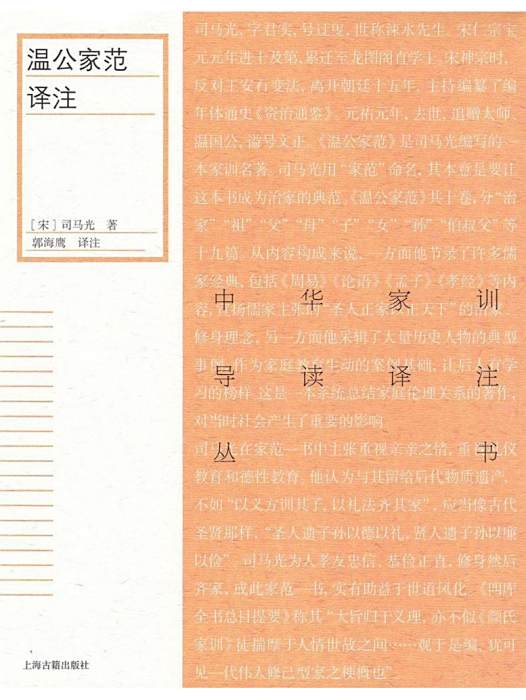 温公家范
译注
[宋]司马光 著
郭海鹰 译注
司马光，字君实，号迂叟，世称涑水先生。宋仁宗宝
元元年进士及第，累迁至龙图阁直学士。宋神宗时，
反对王安石变法，离开朝廷十五年，主持编纂了编
年体通史《资治通鉴》。元祐元年，去世，追赠太师、
温国公，谥号文正。《温公家范》是司马光编写的一
本家训名著。司马光用“家范”命名，其本意是要让
这本书成为治家的典范。《温公家范》共十卷，分“治
家”“祖”“父”“母”“子”“女”“孙”“伯叔父”等
十九篇。从内容构成来说，一方面他节录了许多儒
家经典，包括《周易》《论语》《孟子》《孝经》等内
容，
修身理念，另一方面他采辑了大量历史人物的典型
事例，作为家庭教育生动的案例基础，让后人有学
习的榜样。这是一个系统总结家庭伦理关系的著作，
对当时社会产生了重要的影响。
司马光在家范一书中主张重视亲亲之情，重
教育和德性教育。他认为与其留给后代物质遗产，
不如“以义方训其子，以礼法齐其家”，应当像古代
圣贤那样，“圣人遗子孙以德以礼，贤人遗子孙以廉
以俭”。司马光为人孝友忠信，恭俭正直，修身然后
齐家，成此家范一书，实有助益于世道风化。《四库
全书总目提要》称其“大旨归于义理，亦不似《颜氏
家训》徒揣摩于人情世故之间……观于是编，犹可
见一代伟人修己型家之梗概也”。
中华家训
导读译注
丛书
上海古籍出版社